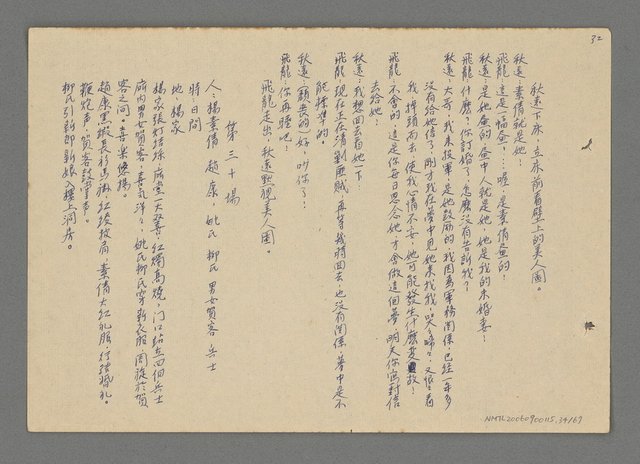 32
秋遠下床，立床前看壁上的美人圖。
秋遠：素倩就是她。
飛龍：這是幅画，…喔，是素倩画的！
秋遠：是她画的，画中人就是她，她是我的未婚妻！
飛龍：什麼？你訂婚了！怎麼沒有告訴我？
秋遠：大哥！我來投軍，是她鼓励的，我因為軍務関係，已經一年多
沒有給她信了，刚才我在夢中見她來找我，哭啼啼，又恨
我掉頭而去，使我心情不安，她可能發生什麼変故！
飛龍：不會的，這是你每日思念她，才會做這個夢，明天你寫封信
去給她！
秋遠：我想回去看她一下！
飛龍：現在正在清剿匪賊，再等幾時回去，也沒有関係，夢中是不
能準的。
秋遠：龍哥的好，叫你了！
飛龍：你再睡吧！
飛龍走出，秋遠默視美人圖。
第三十場
人：楊素倩 趙康 姚氏 柳氏 男女賀客 兵士
時：日間
地：楊家
楊家張灯結綵，廳堂一大囍，紅燭高燒，門口站立四個兵士
廳内男女賀客，喜氣洋洋，姚氏柳氏穿新衣服周旋於賀
客之间。喜樂悠揚。
趙康黑緞長衫馬掛，紅綾披肩，素倩大紅礼服，行結婚礼。
鞭炮声，賀客鼓掌声。
柳氏引新郎新娘入樓上洞房。
NMTL20060900115.34/69